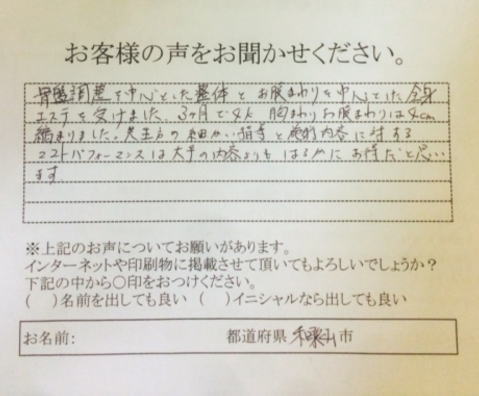 お客様の声をお聞かせください。
骨盤調整を中心とした整体とお腹まわりを中心とした全身
エステを受けました。3ヶ月で 胸まわりお腹まわりは4cm
縮まりました。先生方の細かい指導と 内容に対する
コストパフォーマンスは大手の内容よりもはるかにお得だと思い
ます
※上記のお声についてお願いがあります。
インターネットや印刷物に掲載させて頂いてもよろしいでしょうか?
下記の中から〇印をおつけください。
( )名前を出しても良い ( )イニシャルなら出しても良い
お名前: 都道府県 和歌山市